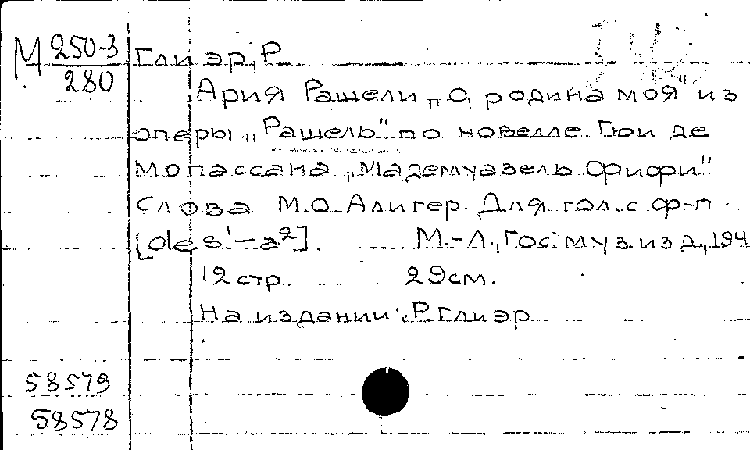 М 250-3
280
Глиэр, Р.
Ария Рашели „О, родина моя" из
оперы „Рашель" по новелле Гюи де
Мопассана „Мадемуазель Фифи"
Слова М.О. Алигер. Для гол. с ф-п
[des¹-a²]. М.-Л., Гос. муз. изд., 194
12 стр. 29 см.
На издании: Р. Глиэр
58579
58578